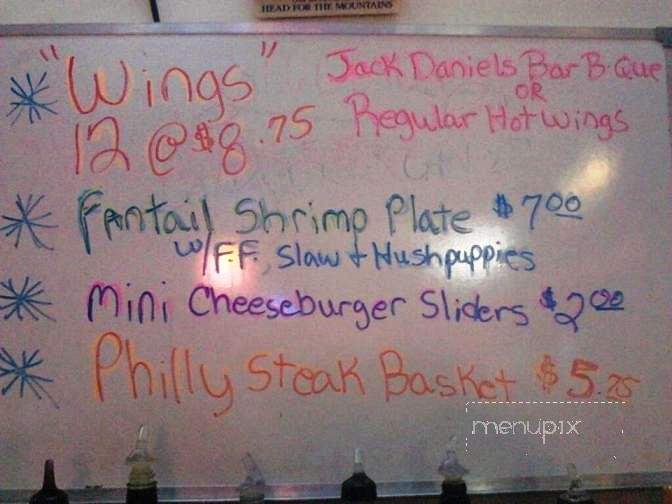 HEAD FOR THE MOUNTAINS
"Wings"
12 @ $8.75
Jack Daniels Bar B. Que
OR
Regular Hot wings
Fantail Shrimp Plate $7.00
w/F.F., Slaw + Hushpuppies
Mini Cheeseburger Sliders $2.00
Philly Steak Basket $5.25
menupix